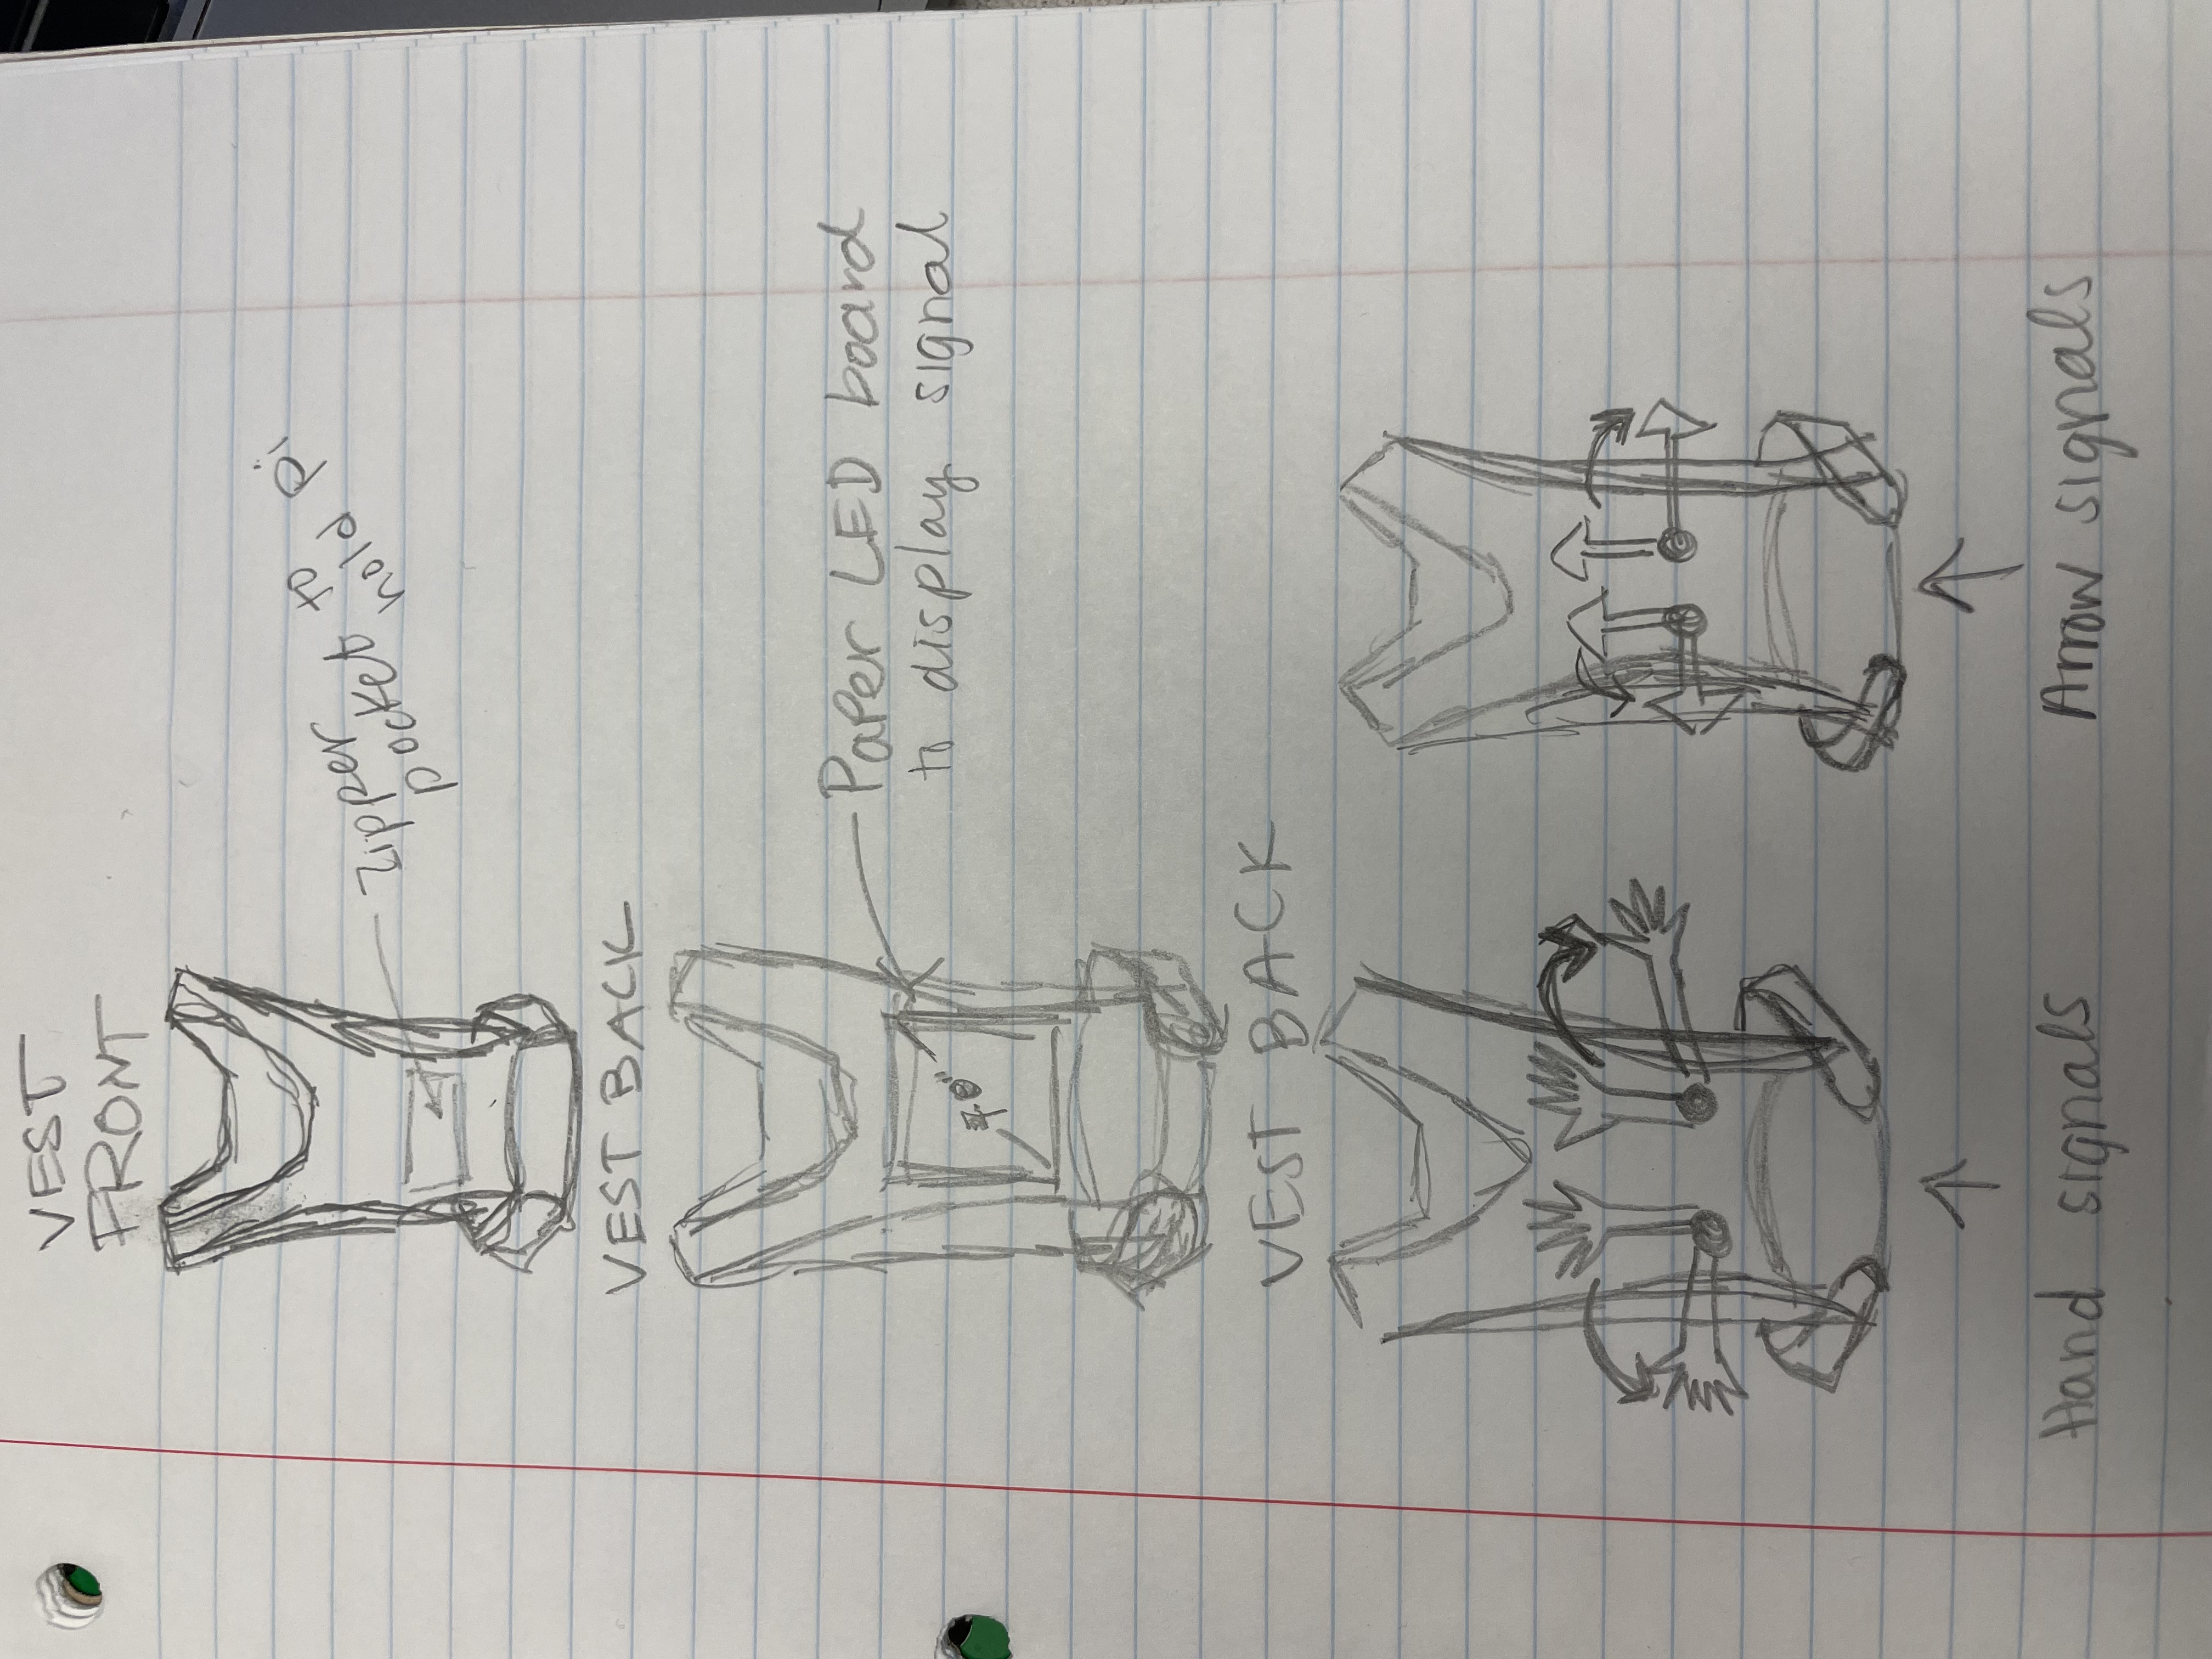 VEST
FRONT
Zipper
pocket to
hold pi
VEST BACK
Paper LED board
to display signal
7.0"
VEST BACK
Hand signals
Arrow signals